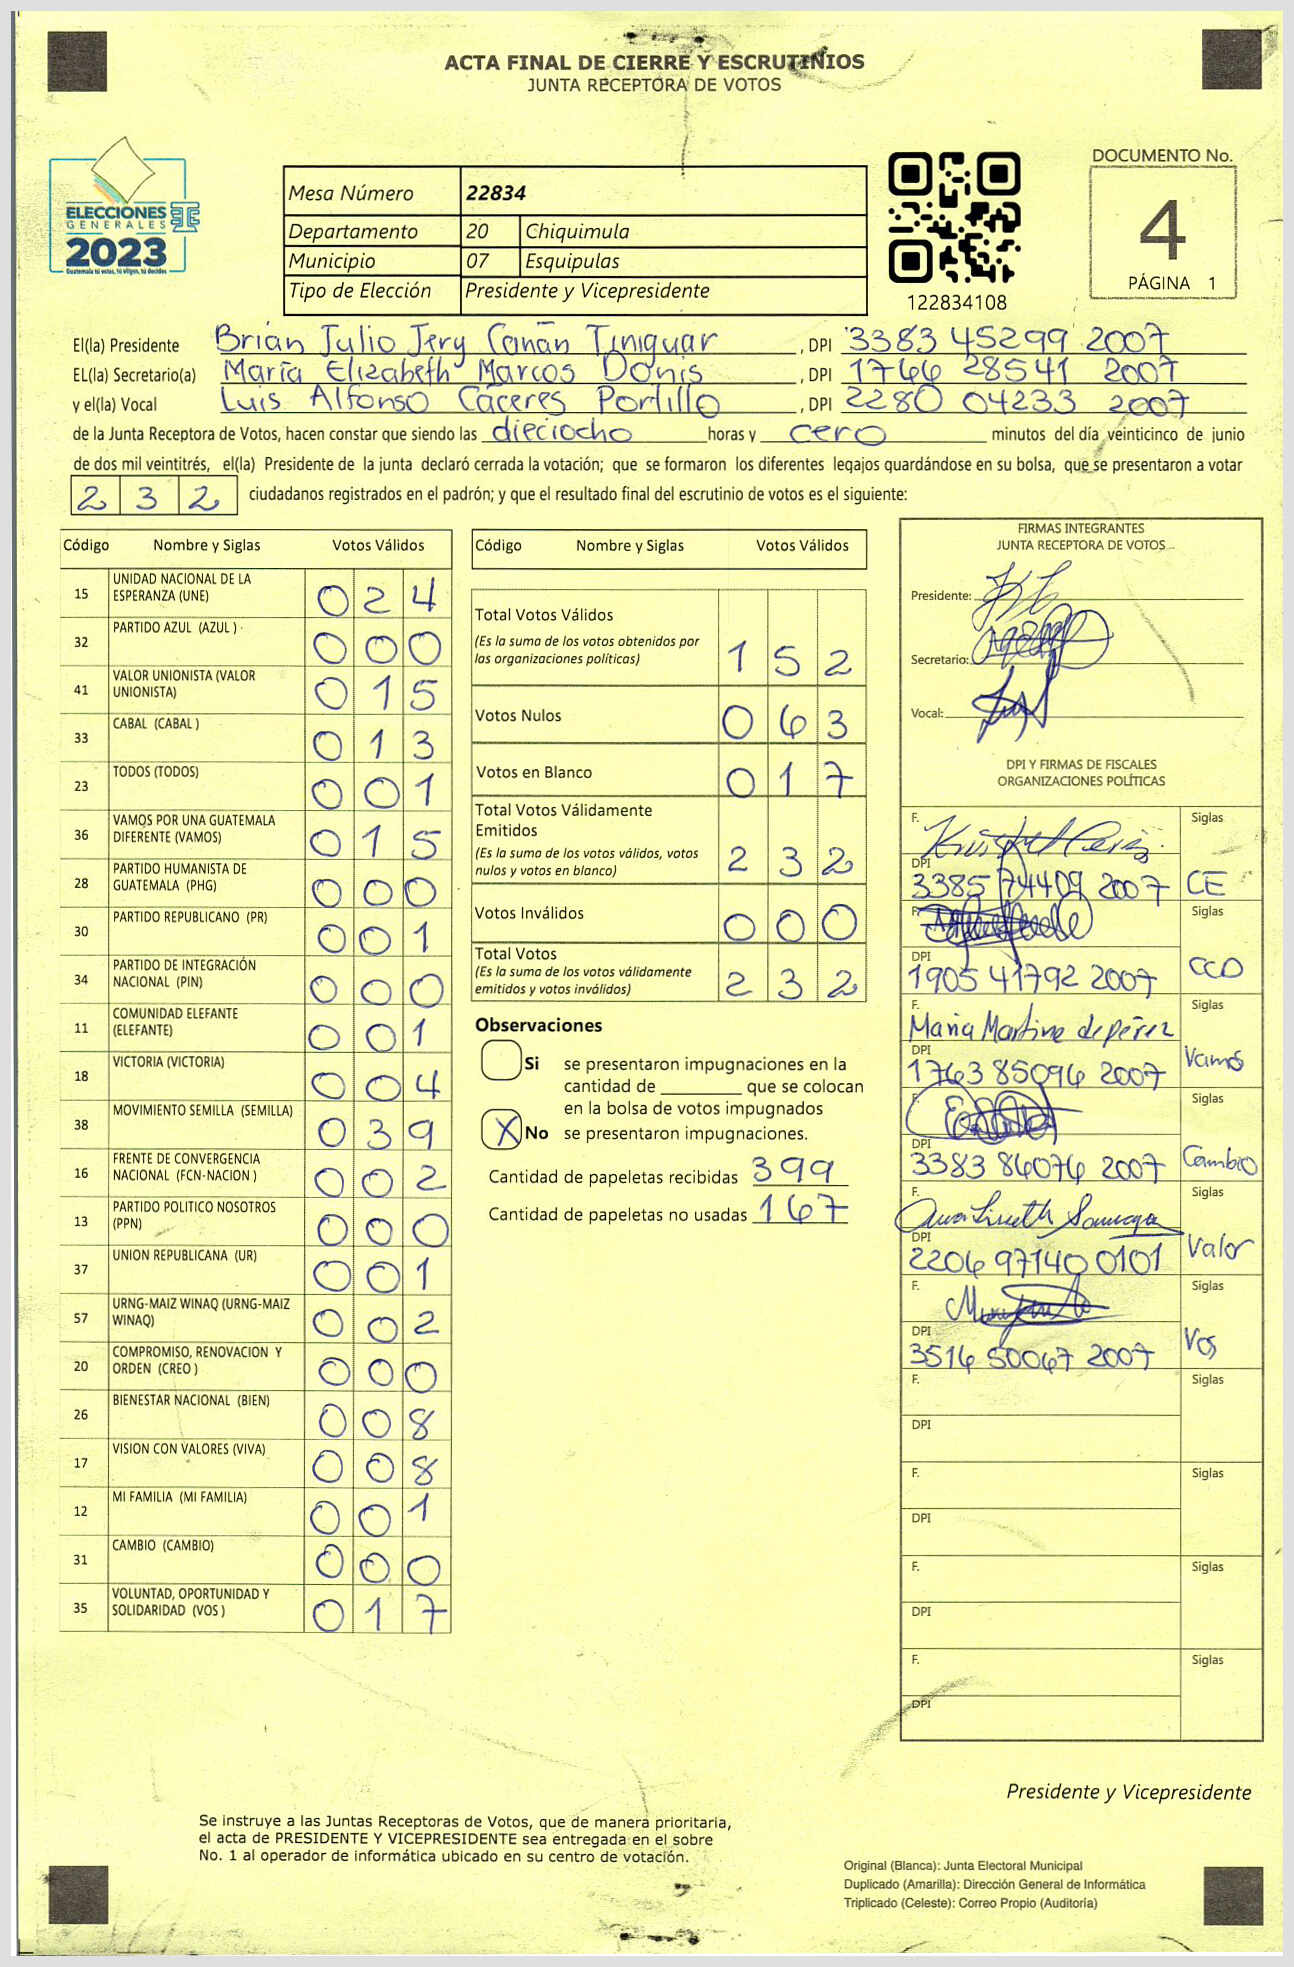 ACTA FINAL DE CIERRE Y ESCRUTINIOS
JUNTA RECEPTORA DE VOTOS
ELECCIONES
GENERALES
2023
Guatemala tú votas, tú eliges, tú decides
Mesa Número 22834
Departamento 20 Chiquimula
Municipio 07 Esquipulas
Tipo de Elección Presidente y Vicepresidente
122834108
DOCUMENTO No.
4
PÁGINA 1
El(la) Presidente Brian Julio Jery Canán Tiniguar , DPI 3383 45299 2007
EL(la) Secretario(a) María Elizabeth Marcos Donis , DPI 1766 28541 2007
y el(la) Vocal Luis Alfonso Cáceres Portillo , DPI 2280 04233 2007
de la Junta Receptora de Votos, hacen constar que siendo las dieciocho horas y cero minutos del día veinticinco de junio
de dos mil veintitrés, el(la) Presidente de la junta declaró cerrada la votación; que se formaron los diferentes legajos guardándose en su bolsa, que se presentaron a votar
232 ciudadanos registrados en el padrón; y que el resultado final del escrutinio de votos es el siguiente:
Código Nombre y Siglas Votos Válidos
15 UNIDAD NACIONAL DE LA ESPERANZA (UNE) 024
32 PARTIDO AZUL (AZUL ) 000
41 VALOR UNIONISTA (VALOR UNIONISTA) 015
33 CABAL (CABAL ) 013
23 TODOS (TODOS) 001
36 VAMOS POR UNA GUATEMALA DIFERENTE (VAMOS) 015
28 PARTIDO HUMANISTA DE GUATEMALA (PHG) 000
30 PARTIDO REPUBLICANO (PR) 001
34 PARTIDO DE INTEGRACIÓN NACIONAL (PIN) 000
11 COMUNIDAD ELEFANTE (ELEFANTE) 001
18 VICTORIA (VICTORIA) 004
38 MOVIMIENTO SEMILLA (SEMILLA) 039
16 FRENTE DE CONVERGENCIA NACIONAL (FCN-NACION ) 002
13 PARTIDO POLITICO NOSOTROS (PPN) 000
37 UNION REPUBLICANA (UR) 001
57 URNG-MAIZ WINAQ (URNG-MAIZ WINAQ) 002
20 COMPROMISO, RENOVACION Y ORDEN (CREO ) 000
26 BIENESTAR NACIONAL (BIEN) 008
17 VISION CON VALORES (VIVA) 008
12 MI FAMILIA (MI FAMILIA) 001
31 CAMBIO (CAMBIO) 000
35 VOLUNTAD, OPORTUNIDAD Y SOLIDARIDAD (VOS ) 017
Código Nombre y Siglas Votos Válidos
Total Votos Válidos
(Es la suma de los votos obtenidos por
las organizaciones políticas) 152
Votos Nulos 063
Votos en Blanco 017
Total Votos Válidamente
Emitidos
(Es la suma de los votos válidos, votos
nulos y votos en blanco) 232
Votos Inválidos 000
Total Votos
(Es la suma de los votos válidamente
emitidos y votos inválidos) 232
Observaciones
Si se presentaron impugnaciones en la
cantidad de ________ que se colocan
en la bolsa de votos impugnados
X No se presentaron impugnaciones.
Cantidad de papeletas recibidas 399
Cantidad de papeletas no usadas 167
FIRMAS INTEGRANTES
JUNTA RECEPTORA DE VOTOS
Presidente:
Secretario:
Vocal:
DPI Y FIRMAS DE FISCALES
ORGANIZACIONES POLÍTICAS
F. Siglas
DPI
3385 74409 2007 CE
F. Siglas
DPI
1905 41792 2007 CCD
F. Siglas
María Martine de pérez
DPI
1763 85096 2007 Vamos
F. Siglas
DPI
3383 86076 2007 Cambio
F. Siglas
DPI
2206 97140 0101 Valor
F. Siglas
DPI
3516 50067 2007 Vos
F. Siglas
DPI
F. Siglas
DPI
F. Siglas
DPI
F. Siglas
DPI
Presidente y Vicepresidente
Se instruye a las Juntas Receptoras de Votos, que de manera prioritaria,
el acta de PRESIDENTE Y VICEPRESIDENTE sea entregada en el sobre
No. 1 al operador de informática ubicado en su centro de votación.
Original (Blanca): Junta Electoral Municipal
Duplicado (Amarilla): Dirección General de Informática
Triplicado (Celeste): Correo Propio (Auditoría)